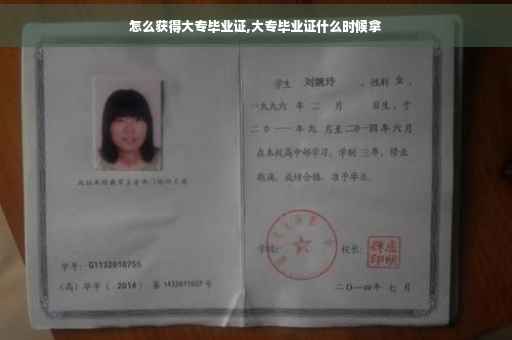 怎么获得大专毕业证,大专毕业证什么时候拿
学生 刘婉玲 ，性别 女 ，
一九九六 年 二 月 日生，于
二〇一一 年 九 月至 二〇一四 年 六 月
在本校高中部学习，学制 三年，修业
期满，成绩合格，准予毕业。
学号： G1132010755
学校：
校长：
(高) 毕字 ( 2014 ) 第 1432011027 号
二〇一四年 七 月